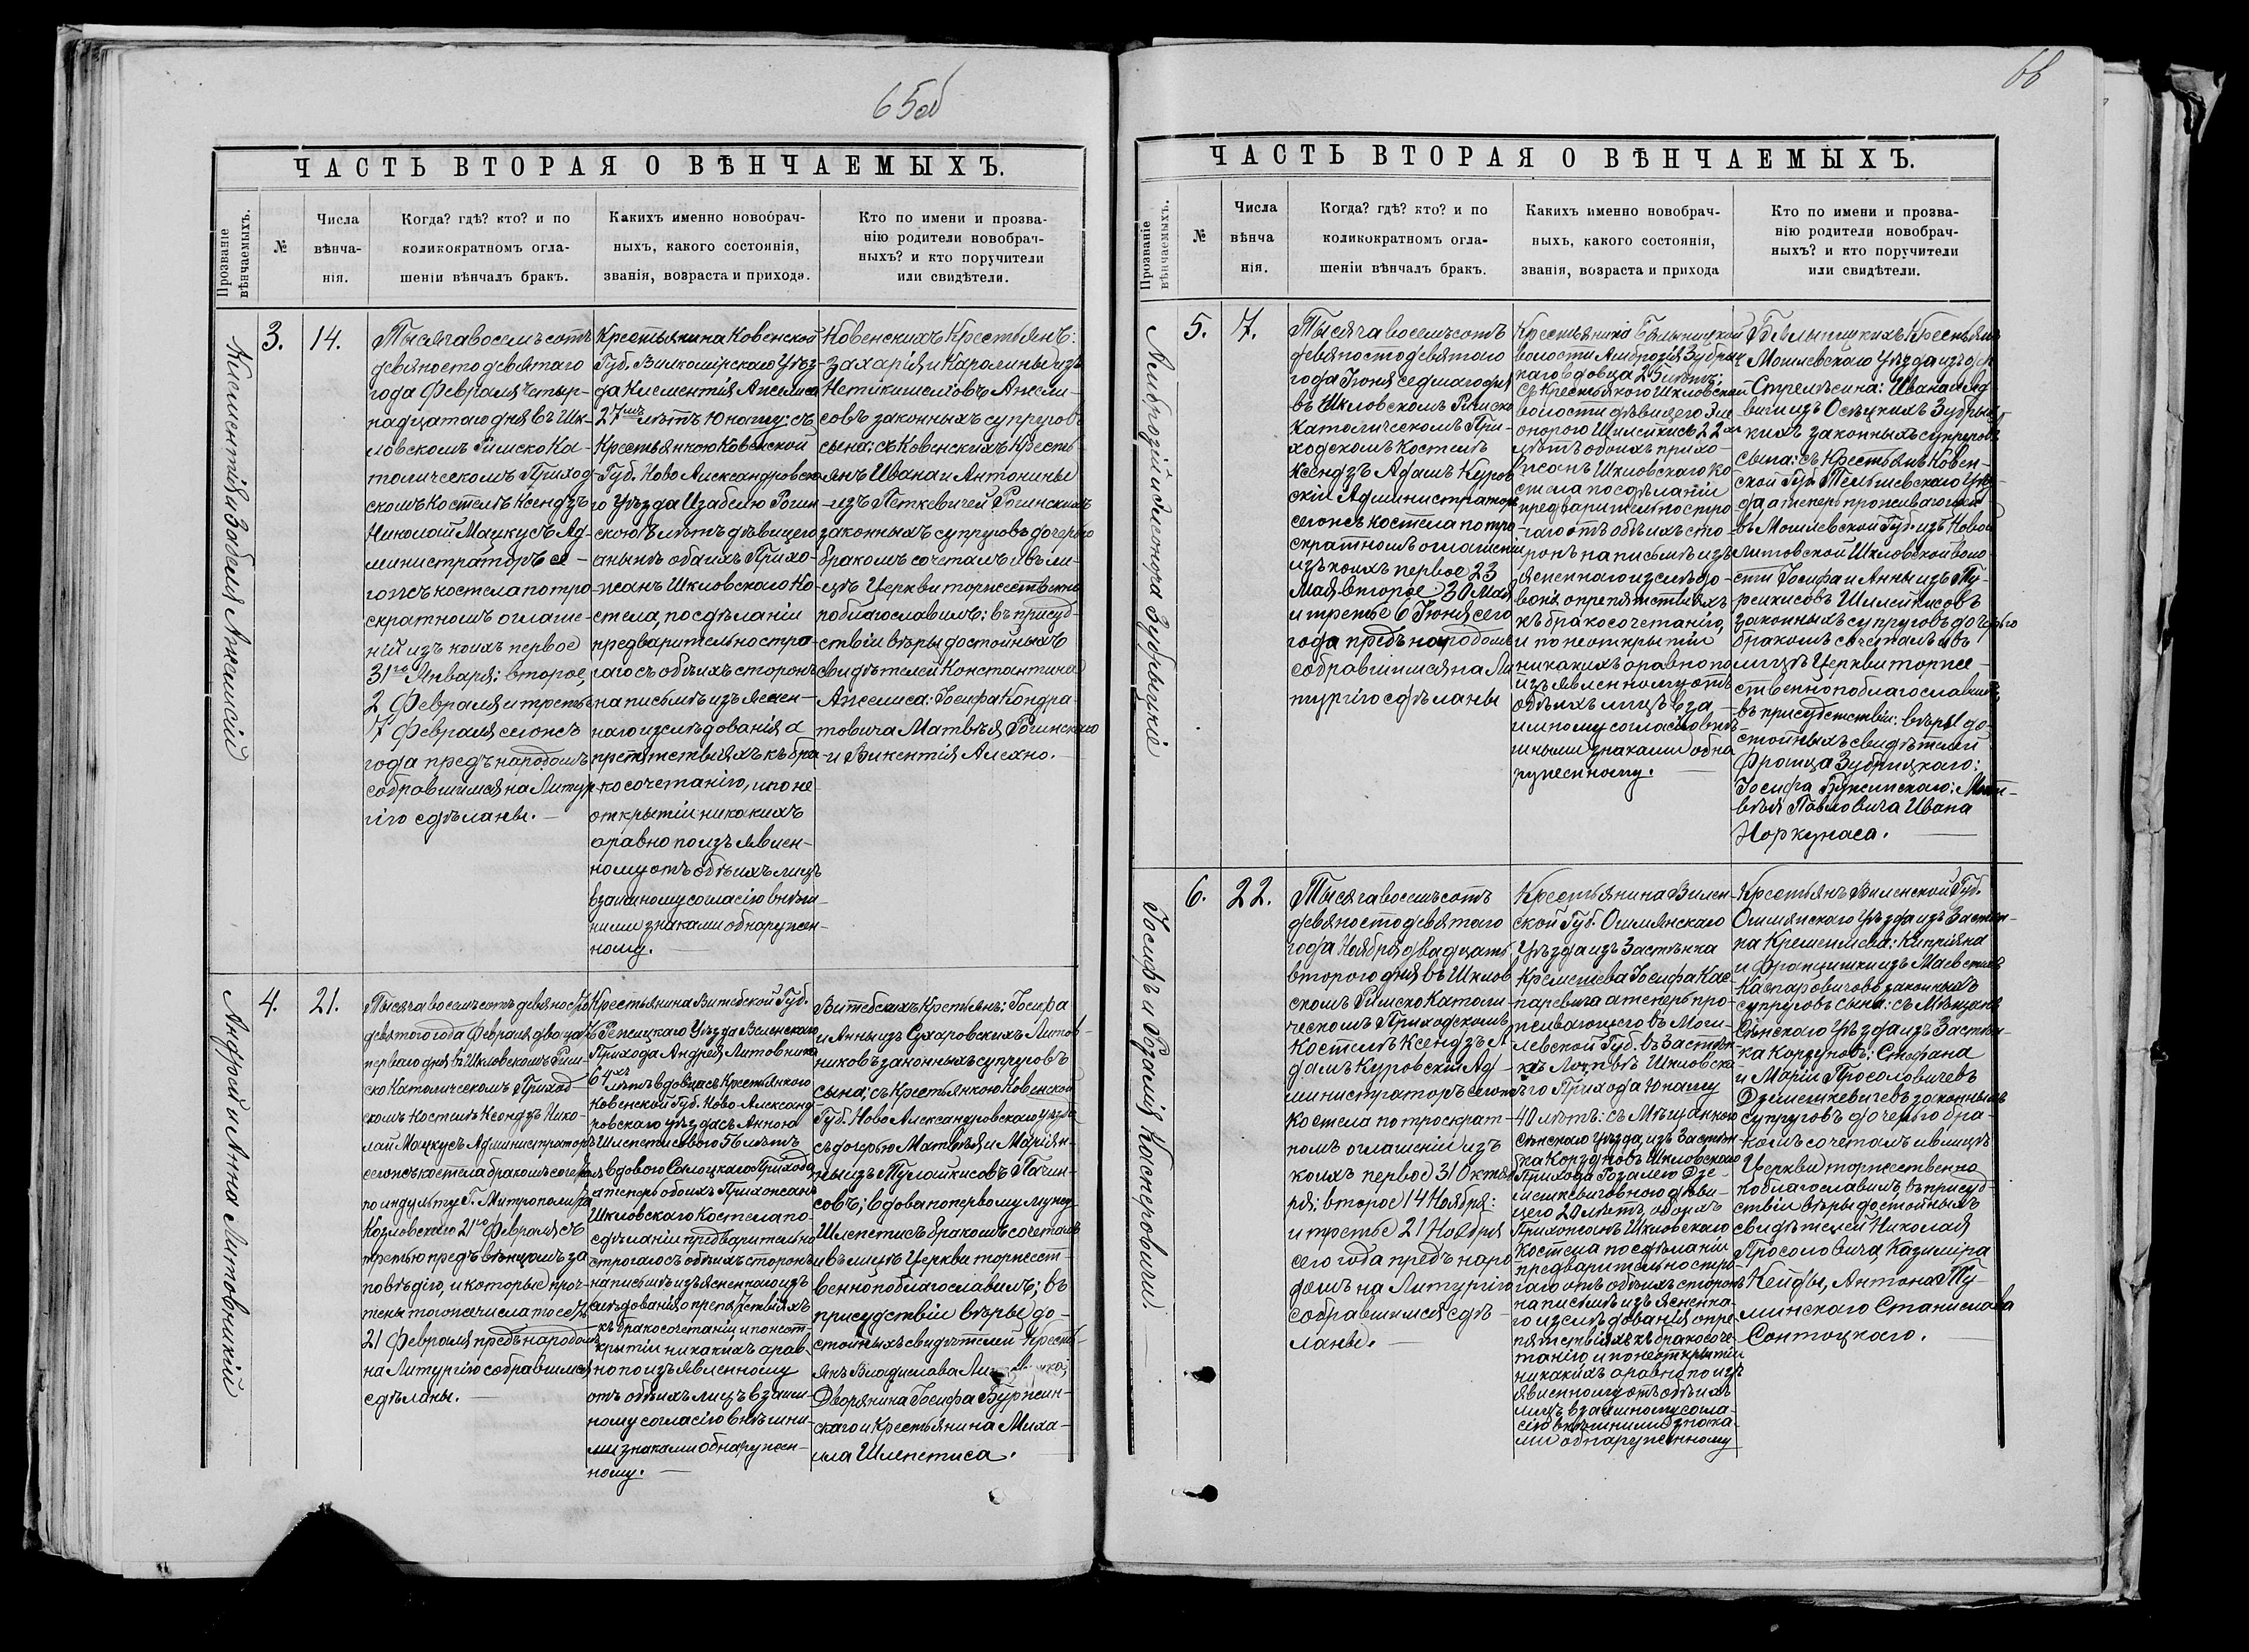 65об
ЧАСТЬ ВТОРАЯ О ВѢНЧАЕМЫХЪ.
Прозваніе
вѣнчаемыхъ.
№
Числа
вѣнча-
нія.
Когда? гдѣ? кто? и по
коликократномъ огла-
шеніи вѣнчалъ бракъ.
Какихъ именно новобрач-
ныхъ, какого состоянія,
званія, возраста и прихода.
Кто по имени и прозва-
нію родители новобрач-
ныхъ? и кто поручители
или свидѣтели.
Климентій и Изабеля Ансемисы
3.
14.
Тысяча восемъ сотъ
девяносто девятаго
года Февраля четыр-
надцатаго дня въ Шк-
ловскомъ Римско Ка-
толическомъ Приход-
скомъ Костелѣ Ксендзъ
Николай Мацкусъ Ад-
министраторъ се-
гожъ костела по тро-
скратномъ оглаше-
ній изъ коихъ первое
31го Января: второе,
2 Февраля и третье
7 Февраля сегожъ
года предъ народомъ
собравшимся на Литур-
гію сдѣланы.
Крестьянина Ковенской
Губ. Вилкомірскаго Уѣз-
да Климентія Анселиса
27ми лѣтъ Юношу: съ
Крестьянкою Ковенской
Губ. Ново Александровска-
го Уѣзда Изабелю Рогин-
скою лѣтъ дѣвицею
аынѣ обоихъ Прихо-
жанъ Шкловскаго Ко-
стела, по сдѣланіи
предварительно стро-
гаго съ обѣихъ сторонъ
на письмѣ изъяснен-
наго изслѣдованія о
препятствіяхъ къ бра-
косочетанію, и по не
открытіи никакихъ
а равно по изъявлен-
ному отъ обѣихъ лицъ
взаимному согласію внѣш-
ними знаками обнаружен-
ному.
Ковенскихъ Крестьянъ:
Захарія и Каролины изъ
Анселисовъ законныхъ супруговъ
сына: съ Ковенскихъ Кресть-
янъ Ивана и Антонины
изъ Петкевичей Рогинскихъ
законныхъ супруговъ дочерью
бракомъ сочеталъ и въ ли-
цѣ Церкви торжественно
поблагославилъ: въ присуд-
ствіи вѣры достойныхъ
свидѣтелей Константина
Анселиса: Іосифа Кондра-
товича Матвѣя Рогинскаго
и Викентія Алехно.
Андрей и Анна Литовникій
4.
21.
Тысяча восемъ сотъ девяносто
девятого года Февраля двадцать
перваго дня въ Шкловскомъ Рим-
ско Католическомъ Приход
скомъ Костелѣ Ксендзъ Нико-
лай Мацкусъ Администраторъ
сегожъ костела бракомъ сочеталъ
по индульту Г. Митрополита
Козловскаго 21го Февраля съ
третью предъ вѣнцомъ за
повѣдію, и которые проч-
тены тогоже числа то есть
21 Февраля предъ народомъ
на Литургію собравшимся
сдѣланы.
Крестьянина Витебской Губ.
Рѣжицкаго Уѣзда
Прихода Андрея Литовника
64хъ лѣтъ вдовца съ Крестьянкою
Ковенской Губ. Ново-Александ-
ровскаго уѣзда съ Анною
Шлепетисовою 56 лѣтъ
вдовою Солоцкаго Прихода
а теперь обоихъ Прихожанъ
Шкловскаго Костела по-
сдѣланіи предварительно
строгаго съ обѣихъ сторонъ
на письмѣ изъясненнаго изъ
слѣдованія о препятствіяхъ
къ бракосочетанію и по неот-
крытіи никакихъ а рав-
но по изъявленному
отъ обѣихъ лицъ взаим-
ному согласію внѣшни-
ми знаками обнаружен-
ному.
Витебскихъ Крестьянъ: Іосифа
и Анны изъ Сухаровскихъ Литов-
никовъ законныхъ супруговъ
сына; съ Крестьянкою Ковенской
Губ. Ново Александровскаго уѣзда
съ дочерью Матвѣя и Марьян-
ны изъ Тулошкисовъ Пачин-
совъ; вдова по первому мужу
Шлепетисъ бракомъ сочеталъ
и въ лицѣ Церкви торжест-
венно поблагославилъ; въ
присудствіи вѣры до-
стойныхъ свидѣтелей Кресть-
янъ Владислава
Дворянина Іосифа Буржин-
скаго и Крестьянина Миха-
ила Шлепетиса.
66
ЧАСТЬ ВТОРАЯ О ВѢНЧАЕМЫХЪ.
Прозваніе
вѣнчаемыхъ.
№
Числа
вѣнча
нія.
Когда? гдѣ? кто? и по
коликократномъ огла-
шеніи вѣнчалъ бракъ.
Какихъ именно новобрач-
ныхъ, какого состоянія,
званія, возраста и прихода
Кто по имени и прозва-
нію родители новобрач-
ныхъ? и кто поручители
или свидѣтели.
Амброзій и Элеонора Зубрыцкіе
5.
7.
Тысяча восемъ сотъ
девяносто девятого
года Іюня седмаго дня
въ Шкловскомъ Римско
Католическомъ При-
ходскомъ Костелѣ
Ксендзъ Адамъ Куров
скій Администраторъ
сегожъ костела по тро
скратномъ оглашеніи
изъ коихъ первое 23
Мая второе 30 Мая
и третье 6 Іюня сего
года предъ народомъ
собравшимся на Ли
тургію сдѣланы
Крестьянина Бялыницкой
волости Амброзія Зубриц
каго вдовца 25 лѣтъ:
съ Крестьянкою Шкловской
волости дѣвицею Эле
онорою Шилейкисъ 22хъ
лѣтъ обоихъ прихо-
жанъ Шкловскаго Ко
стела по сдѣланіи
предварительно стро
гаго отъ обѣихъ сто-
ронъ на письмѣ изъ
ясненнаго изслѣдо-
ванія о препятствіяхъ
къ бракосочетанію,
и по неоткрытіи
никакихъ а равно по
изъявленному отъ
обѣихъ лицъ вза-
имному согласію внѣ-
шными знаками обна
руженному.
Бялыницкихъ Крестьянъ
Могилевскаго Уѣзда изъ дер
Стрелѣсина: Ивана и Яд
виги изъ Осѣцкихъ Зубрыц
кихъ законныхъ супруговъ
сына: съ Крестьянъ Ковен-
ской Губ. Тельшевскаго Уѣз-
да а теперь проживающихъ
въ Могилевской Губ. изъ Новой
Литовской Шкловской воло
сти Іосифа и Анны изъ Ту-
реикисовъ Шилейкисовъ
законныхъ супруговъ дочерью
бракомъ сочеталъ и въ
лицѣ Церкви торже-
ственно поблагославилъ,
въ присудствіи: вѣры до-
стойныхъ свидѣтелей
Франца Зубрицкаго:
Іосифа Буржинскаго: Мат-
вѣя Павловича Ивана
Норкунаса.
Іосифъ и Розалія Касперовичи.
6.
22.
Тысяча восемъ сотъ
девяносто девятого
года Ноября двадцать
второго дня въ Шклов
скомъ Римско Католи-
ческомъ Приходскомъ
Костелѣ Ксендзъ А-
дамъ Куровскій Ад-
министраторъ сегожъ
костела по троскрат-
номъ оглашеніи изъ
коихъ первое 31 Октяб
ря: второе 14 Ноября:
и третье 21 Ноября
сего года предъ наро
домъ на Литургію
собравшимся сдѣ-
ланы.
Крестьянина Вилен-
ской Губ. Ошмянскаго
Уѣзда изъ Застѣнка
Кремешева Іосифа Кас-
паревича а теперь про-
живающего въ Моги-
левской Губ. въ Застѣн-
кѣ Шкловска
го Прихода Юношу
40 лѣтъ: съ Мѣщанкою
Сѣнскаго Уѣзда, изъ Застѣн
ка Корзуновъ Шкловскаго
Прихода Розалею Дзе-
мешкевичовною дѣви-
цею 20 лѣтъ, обоихъ
Прихожанъ Шкловскаго
Костела по сдѣланіи
предварительно стро-
гаго отъ обѣихъ сторонъ
на письмѣ изъясненна-
го изслѣдованія о пре
пятствіяхъ къ бракосоче-
танію и по неоткрытіи
никакихъ а равно по изъ
явленному отъ обѣихъ
лицъ взаимному согла-
сію внѣшними знака-
ми обнаруженному
Крестьянъ Виленской Губ.
Ошмянскаго Уѣзда изъ Застѣн-
ка Кремешева: Кипріяна
и Францишки изъ
Каспаровичовъ законныхъ
супруговъ сына: съ Мѣщанъ
Сѣнскаго Уѣзда изъ Застѣн-
ка Корзуновъ: Стефана
и Маріи Просоловичевъ
Дземешкевичевъ законныхъ
супруговъ дочерью бра-
комъ сочеталъ и въ лицѣ
Церкви торжественно
поблагославилъ, въ присуд-
ствіи вѣры достойныхъ
свидѣтелей Николая
Просоловича, Казиміра
Кейды, Антона Ту-
минскаго Станислава
Сонтоцкаго.